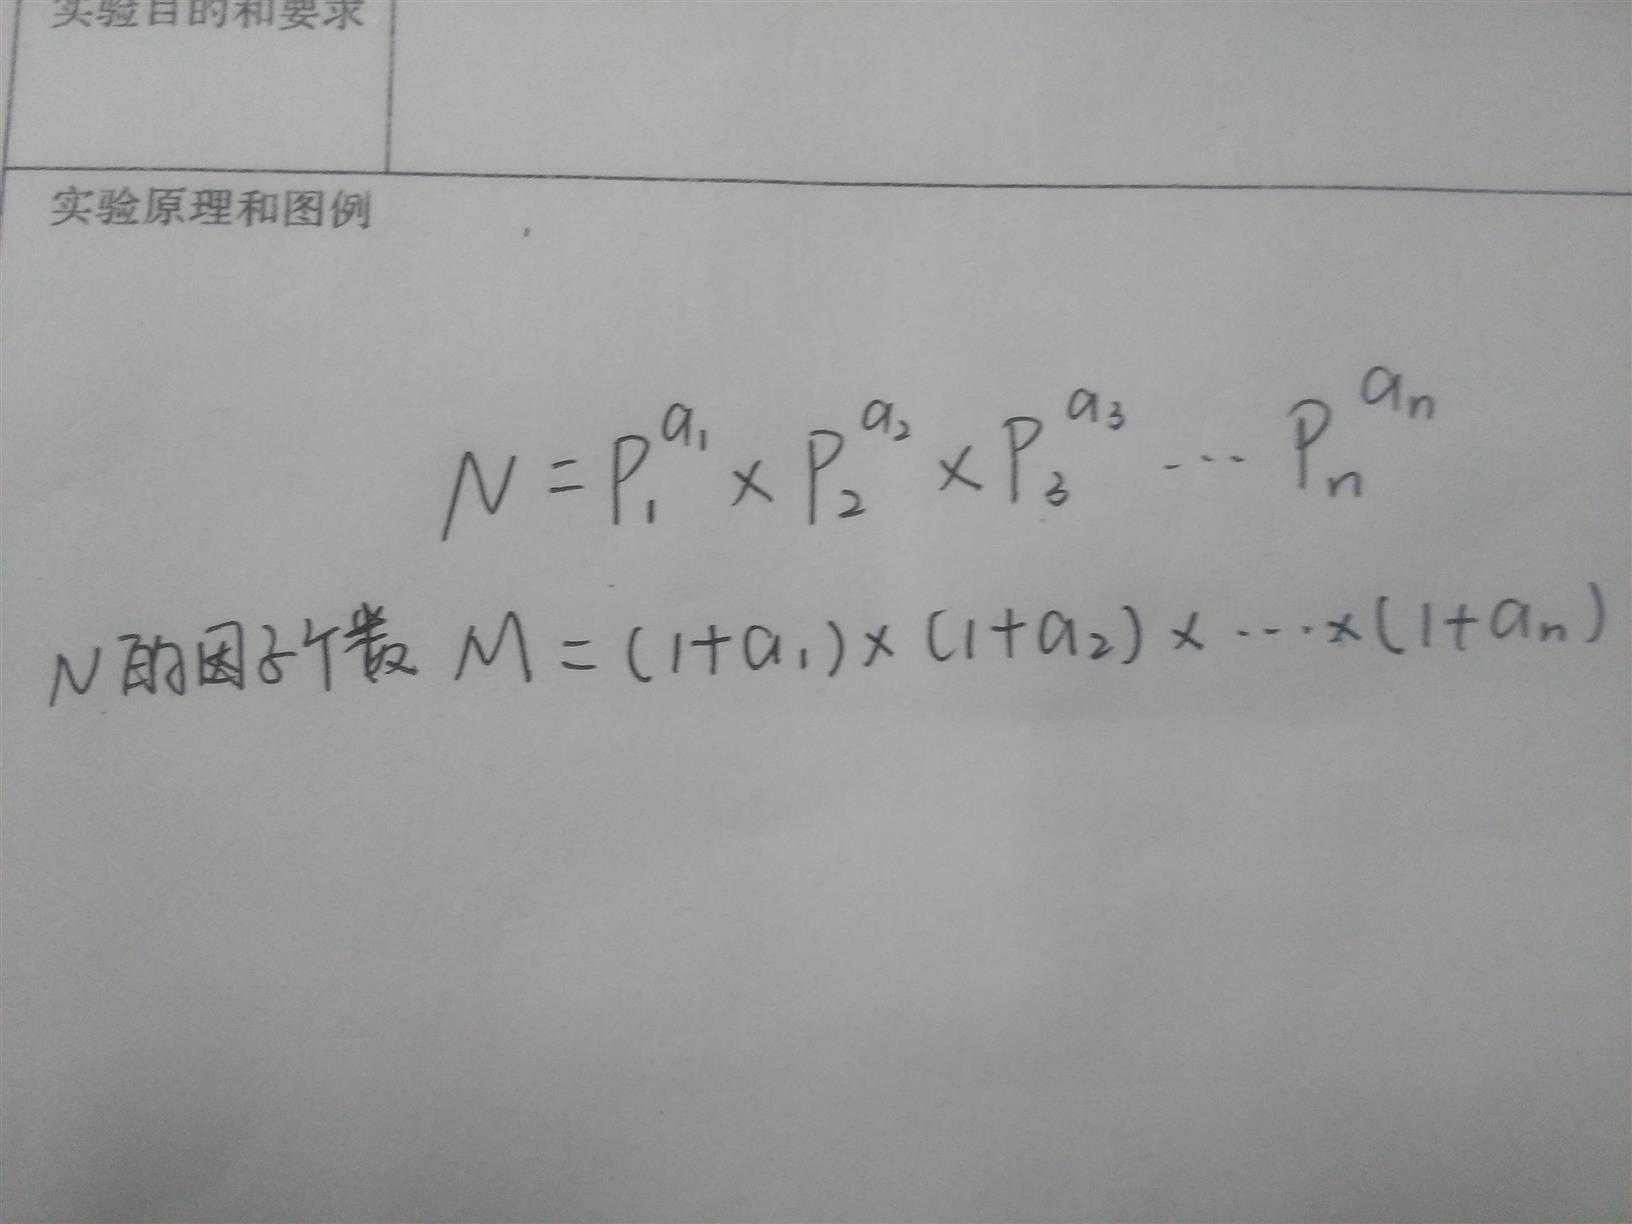 实验目的和要求
实验原理和图例
N = P₁^a₁ × P₂^a₂ × P₃^a₃ ... Pₙ^aₙ
N的因子个数 M = (1+a₁)×(1+a₂)× ... ×(1+aₙ)